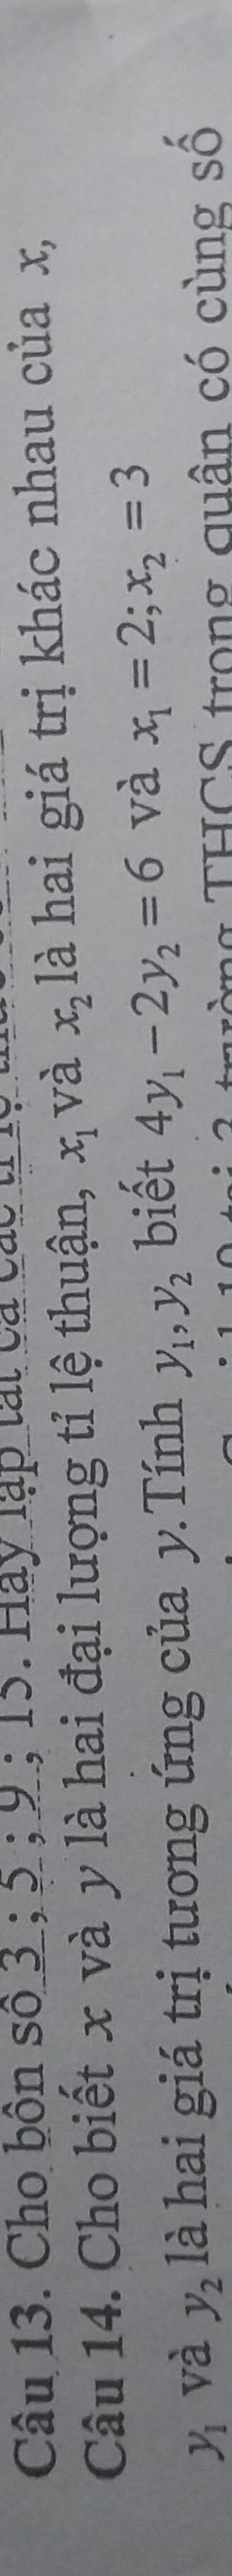 Câu 13. Cho bốn số 3 ; 5 ; 9 ; 15. Hãy lập tất cả các tỉ lệ
Câu 14. Cho biết x và y là hai đại lượng tỉ lệ thuận, x₁ và x₂ là hai giá trị khác nhau của x,
y₁ và y₂ là hai giá trị tương ứng của y.Tính y₁, y₂ biết 4y₁ − 2y₂ = 6 và x₁ = 2; x₂ = 3
trường THCS trong quận có cùng số